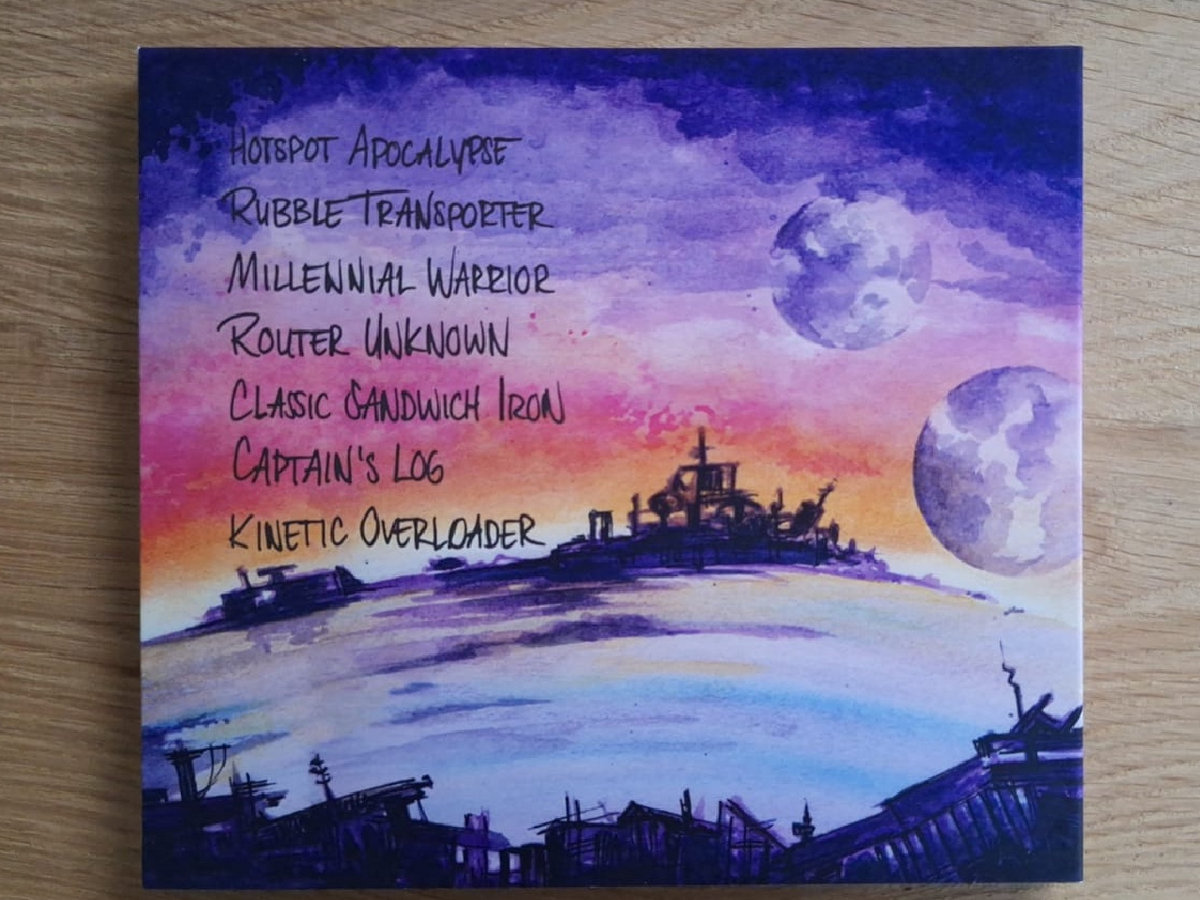 Hotspot Apocalypse
Rubble Transporter
Millennial Warrior
Router Unknown
Classic Sandwich Iron
Captain's Log
Kinetic Overloader